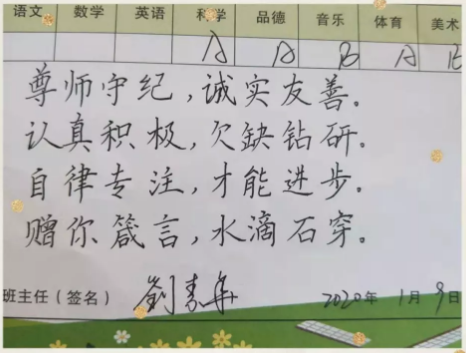 语文 数学 英语 科学 品德 音乐 体育 美术
A A B A B
尊师守纪，诚实友善。
认真积极，欠缺钻研。
自律专注，才能进步。
赠你箴言，水滴石穿。
班主任（签名） 2020年 1月 9日